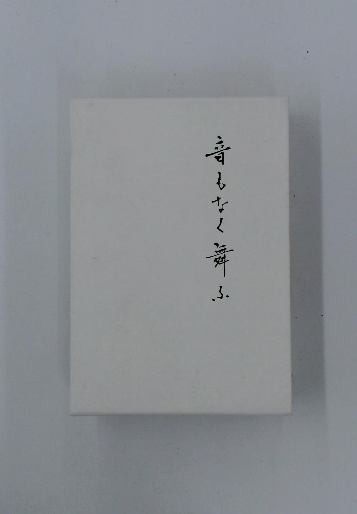 音もなく舞ふ